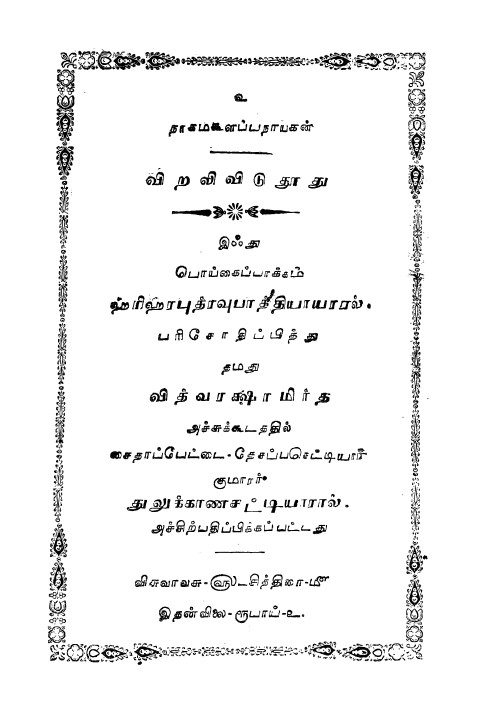 உ
நாகமகூளப்பநாயகன்
விறலிவிடுதூது
இஃது
பொய்கைப்பாக்கம்
ஹரிஹரபுத்ரவுபாத்தியாயரால்.
பரிசோதிப்பித்து
தமது
வித்வரக்ஷாமிர்த
அச்சுக்கூடத்தில்
சைதாப்பேட்டை-தேசப்பசெட்டியார்
குமாரர்
துலுக்காணசட்டியாரால்.
அச்சிற்பதிப்பிக்கப்பட்டது
விசுவாவசு-௵-சித்திரை-௴
இதன்விலை-ரூபாய்-உ.